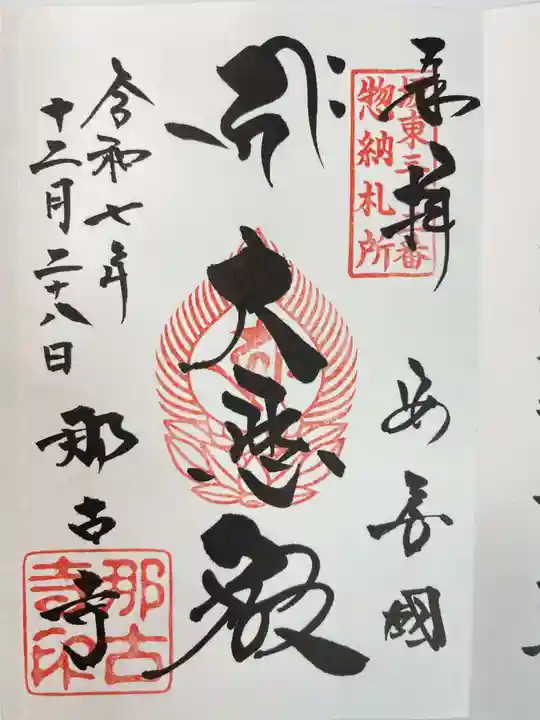 奉拝
坂東三十三番
惣納札所
安房國
大悲殿
令和七年
十二月二十八日
那古寺
那古寺印